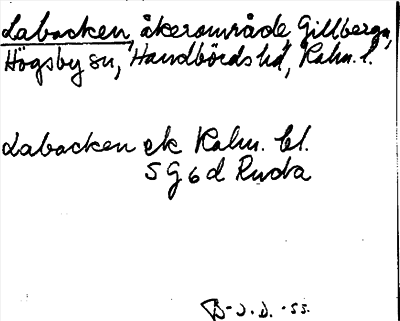 Labacken, åkerområde, Gillberga,
Högsby sn, Handbörds hd, Kalm. l.
Labacken ek Kalm. bl.
5 G 6 d Ruda
B-J.D. -55.